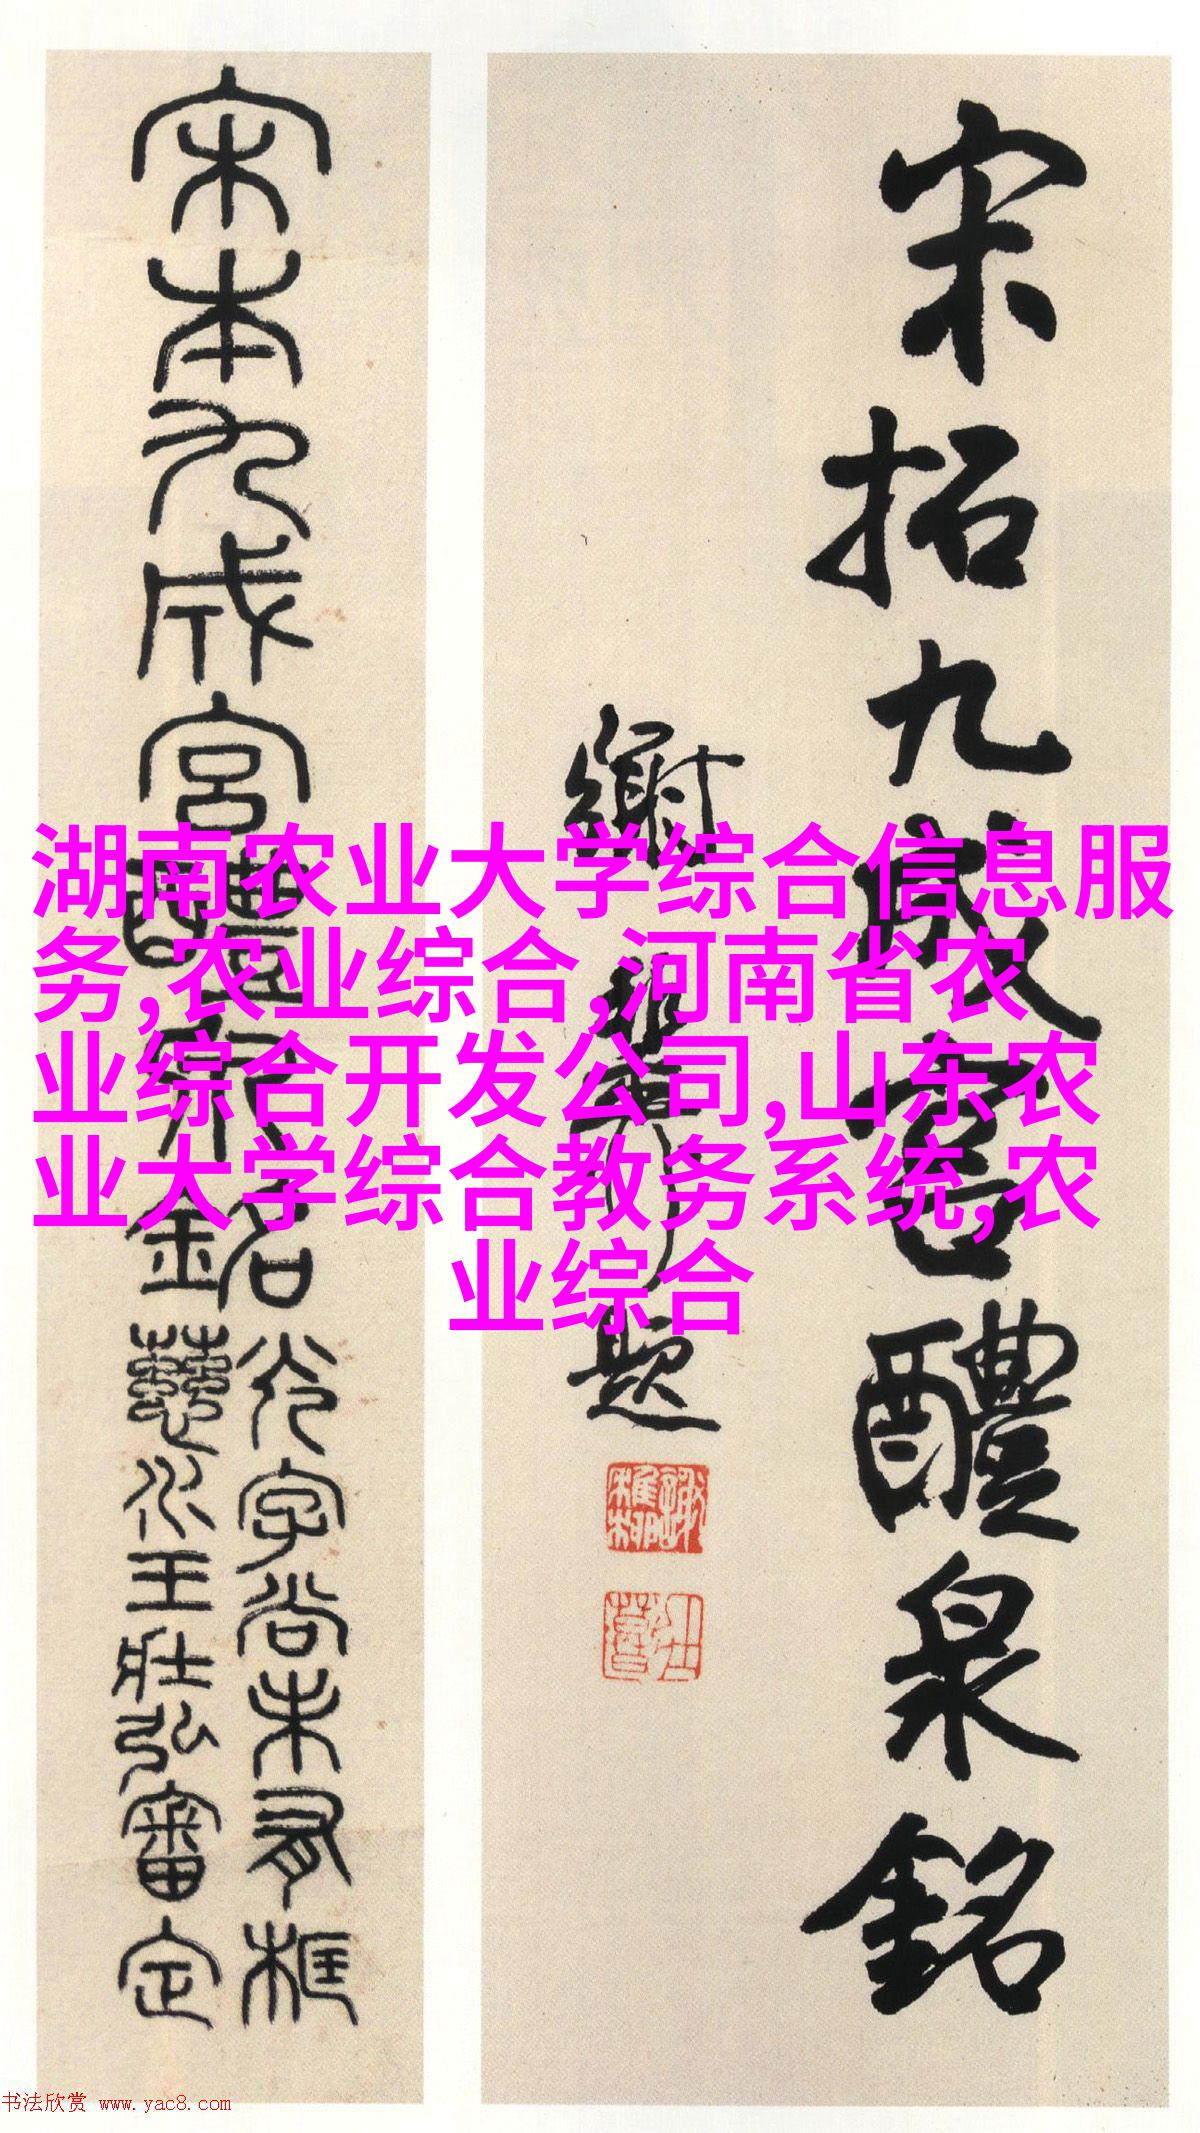 宋拓九成宫醴泉銘
題
宋本九成宫醴泉銘
字尚未有框
王壮弘審定
湖南农业大学综合信息服
务,农业综合,河南省农
业综合开发公司,山东农
业大学综合教务系统,农
业综合
书法欣赏 www.yac8.com